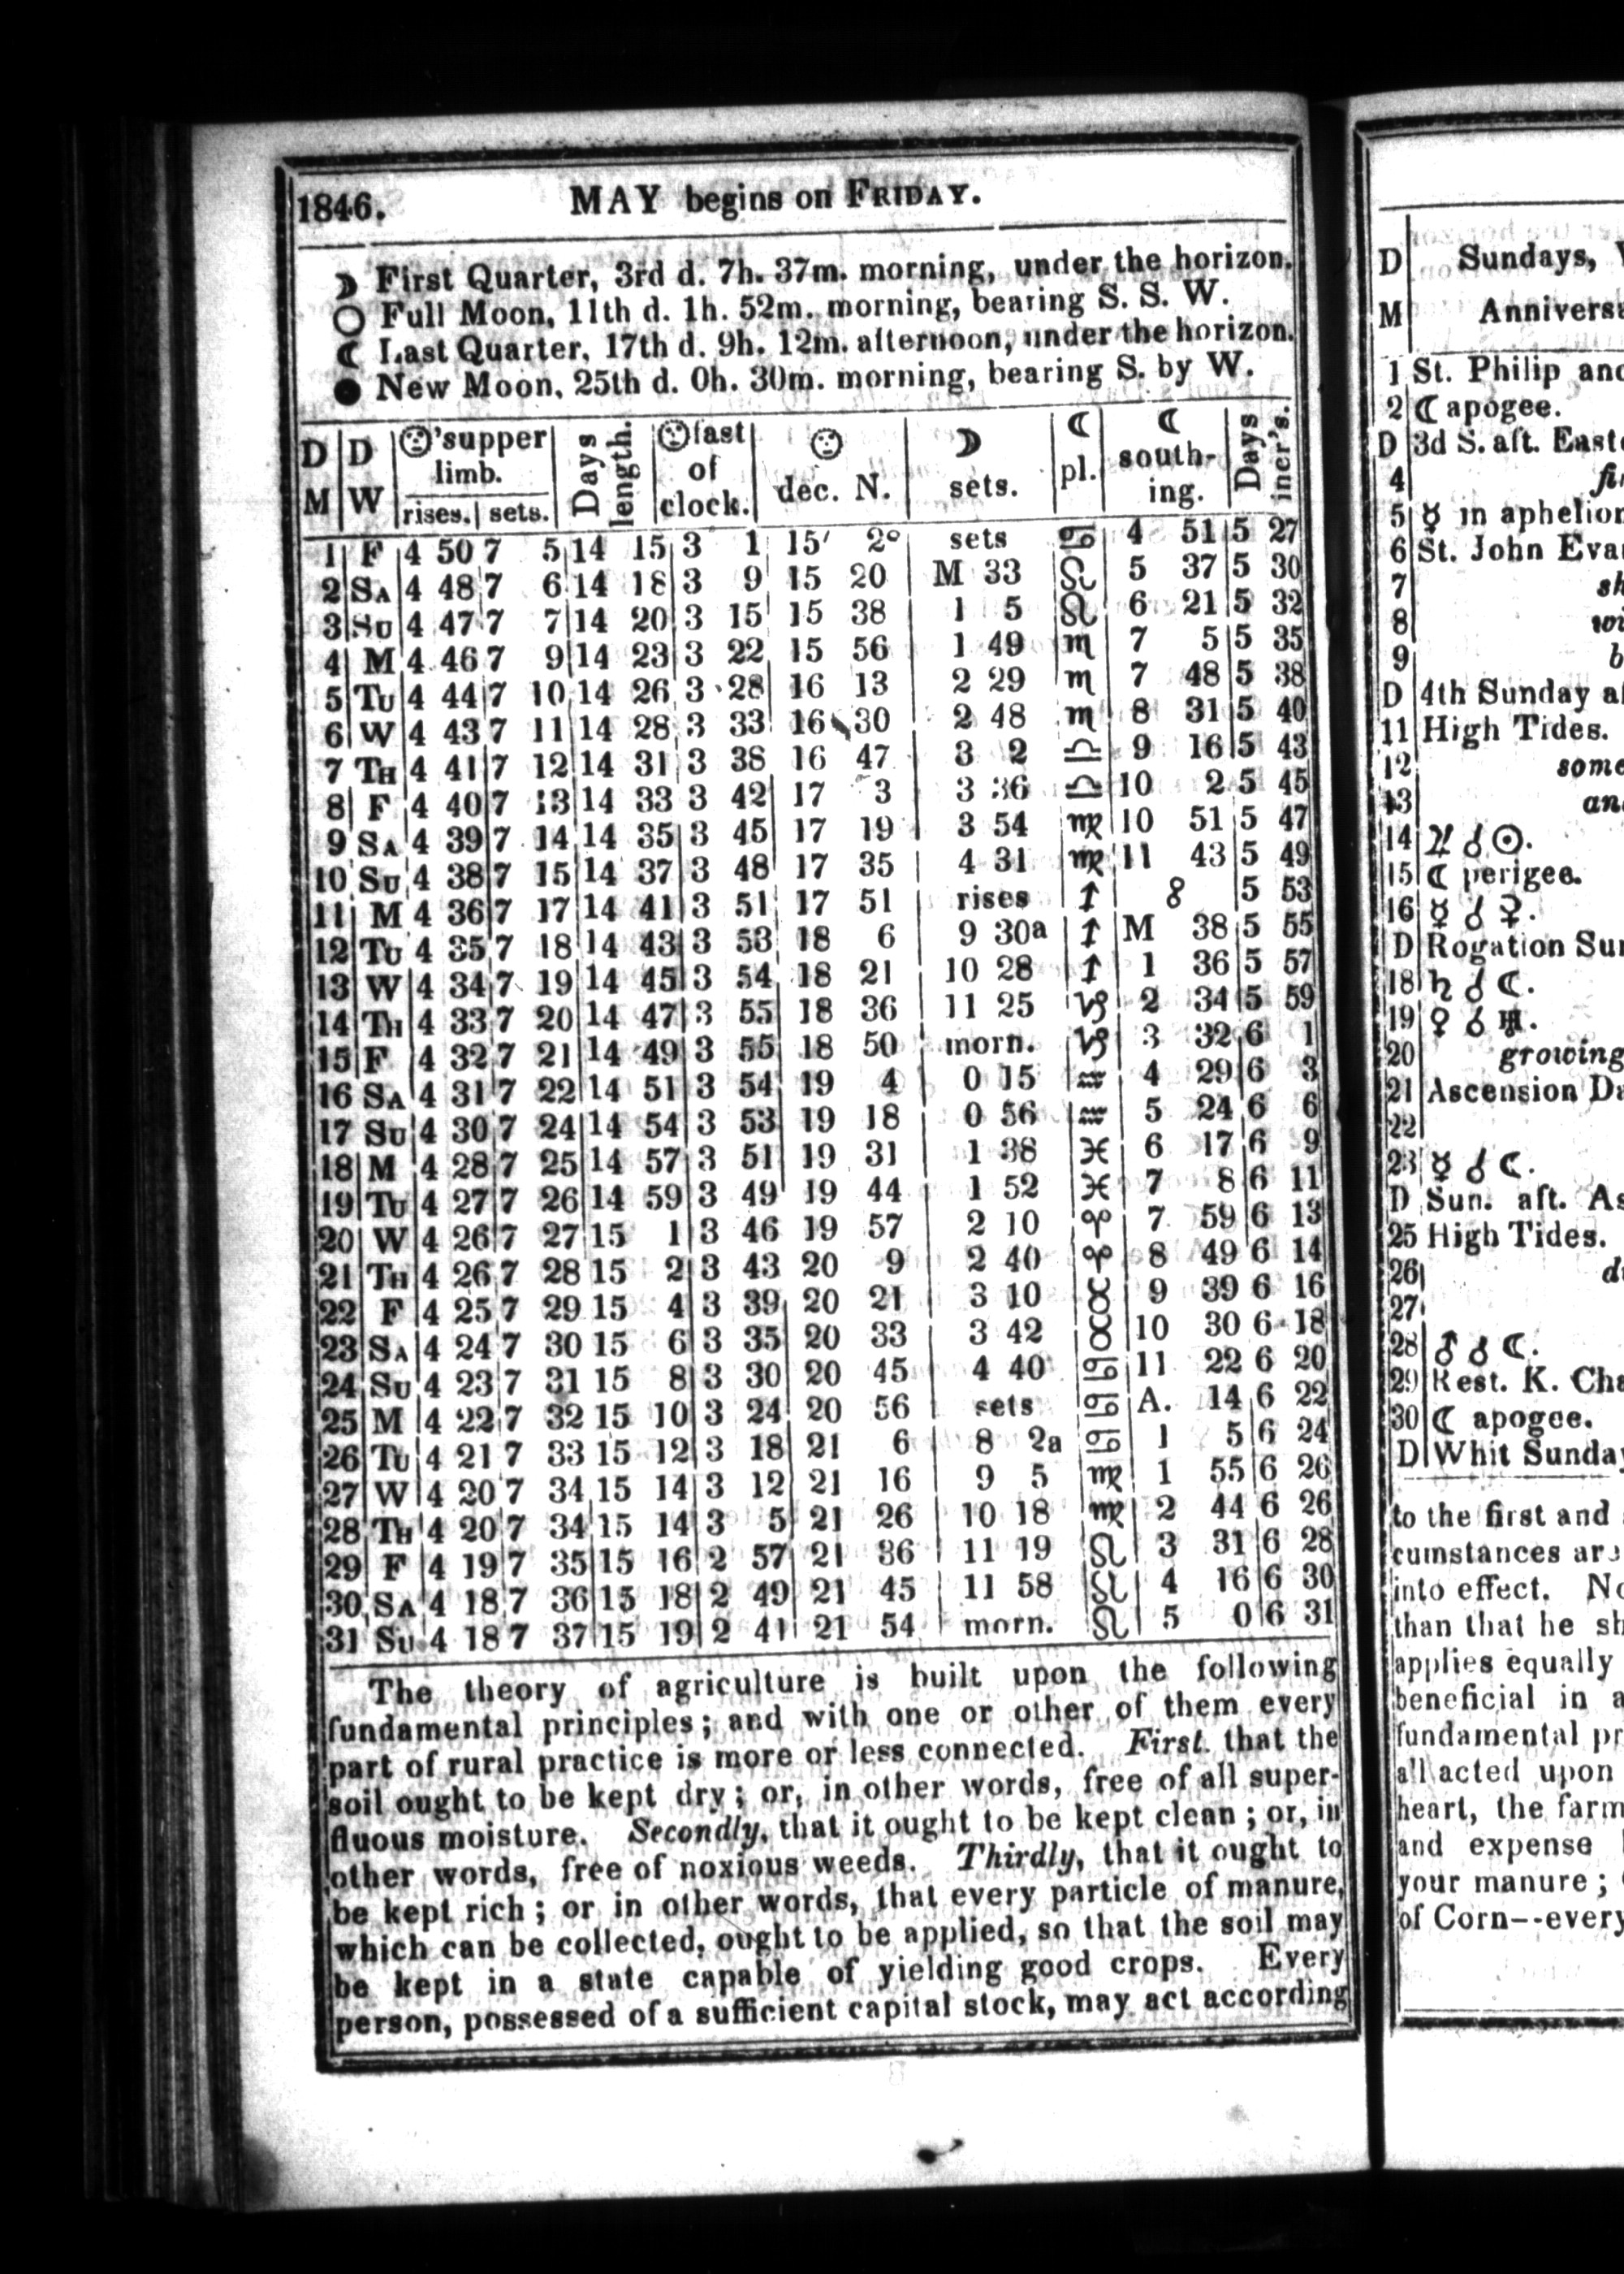 1846. MAY begins on FRIDAY.
☽ First Quarter, 3rd d. 7h. 37m. morning, under the horizon.
○ Full Moon, 11th d. 1h. 52m. morning, bearing S. S. W.
☾ Last Quarter, 17th d. 9h. 12m. afternoon, under the horizon.
● New Moon, 25th d. 0h. 30m. morning, bearing S. by W.
D M | D W | ☉'supper limb. rises. | sets. | Days length. | ☉fast of clock. | ☉ dec. N. | ☽ sets. | ☾ pl. | ☾ south-ing. | Days incr's.
1 F 4 50 7 5 14 15 3 1 15′ 2° sets ♋ 4 51 5 27
2 SA 4 48 7 6 14 18 3 9 15 20 M 33 ♌ 5 37 5 30
3 SU 4 47 7 7 14 20 3 15 15 38 1 5 ♌ 6 21 5 32
4 M 4 46 7 9 14 23 3 22 15 56 1 49 ♏ 7 5 5 35
5 TU 4 44 7 10 14 26 3 28 16 13 2 29 ♏ 7 48 5 38
6 W 4 43 7 11 14 28 3 33 16 30 2 48 ♏ 8 31 5 40
7 TH 4 41 7 12 14 31 3 38 16 47 3 2 ♎ 9 16 5 43
8 F 4 40 7 13 14 33 3 42 17 3 3 36 ♎ 10 2 5 45
9 SA 4 39 7 14 14 35 3 45 17 19 3 54 ♍ 10 51 5 47
10 SU 4 38 7 15 14 37 3 48 17 35 4 31 ♍ 11 43 5 49
11 M 4 36 7 17 14 41 3 51 17 51 rises ↑ ☍ 5 53
12 TU 4 35 7 18 14 43 3 53 18 6 9 30a ↑ M 38 5 55
13 W 4 34 7 19 14 45 3 54 18 21 10 28 ↑ 1 36 5 57
14 TH 4 33 7 20 14 47 3 55 18 36 11 25 ♑ 2 34 5 59
15 F 4 32 7 21 14 49 3 55 18 50 morn. ♑ 3 32 6 1
16 SA 4 31 7 22 14 51 3 54 19 4 0 15 ♒ 4 29 6 3
17 SU 4 30 7 24 14 54 3 53 19 18 0 56 ♒ 5 24 6 6
18 M 4 28 7 25 14 57 3 51 19 31 1 38 ♓ 6 17 6 9
19 TU 4 27 7 26 14 59 3 49 19 44 1 52 ♓ 7 8 6 11
20 W 4 26 7 27 15 1 3 46 19 57 2 10 ♈ 7 59 6 13
21 TH 4 26 7 28 15 2 3 43 20 9 2 40 ♈ 8 49 6 14
22 F 4 25 7 29 15 4 3 39 20 21 3 10 ♉ 9 39 6 16
23 SA 4 24 7 30 15 6 3 35 20 33 3 42 ♉ 10 30 6 18
24 SU 4 23 7 31 15 8 3 30 20 45 4 40 ♋ 11 22 6 20
25 M 4 22 7 32 15 10 3 24 20 56 sets ♋ A. 14 6 22
26 TU 4 21 7 33 15 12 3 18 21 6 8 2a ♋ 1 5 6 24
27 W 4 20 7 34 15 14 3 12 21 16 9 5 ♍ 1 55 6 26
28 TH 4 20 7 34 15 14 3 5 21 26 10 18 ♍ 2 44 6 26
29 F 4 19 7 35 15 16 2 57 21 36 11 19 ♌ 3 31 6 28
30 SA 4 18 7 36 15 18 2 49 21 45 11 58 ♌ 4 16 6 30
31 SU 4 18 7 37 15 19 2 41 21 54 morn. ♌ 5 0 6 31
The theory of agriculture is built upon the following
fundamental principles; and with one or other of them every
part of rural practice is more or less connected. First, that the
soil ought to be kept dry; or, in other words, free of all super-
fluous moisture. Secondly, that it ought to be kept clean; or, in
other words, free of noxious weeds. Thirdly, that it ought to
be kept rich; or in other words, that every particle of manure,
which can be collected, ought to be applied, so that the soil may
be kept in a state capable of yielding good crops. Every
person, possessed of a sufficient capital stock, may act according
D Sundays,
M
1 St. Philip
2 ☾ apogee.
D 3d S. aft.
4
5 ☿ in
6 St. John
7
8
9
D 4th Sunday
11 High Tides.
12
13
14 ♃ ☌ ☉.
15 ☾ perigee.
16 ☿ ☌ ♀.
D Rogation
18 ♄ ☌ ☾.
19 ♀ ☌ ♅.
20 growing
21 Ascension
22
23 ☿ ☌ ☾.
D Sun. aft.
25 High Tides.
26
27
28 ♂ ☌ ☾.
29 Rest. K.
30 ☾ apogee.
D Whit Sunday
to the first and
cumstances are
into effect.
than that he
applies equally
beneficial in
fundamental
all acted upon
heart, the
and expense
your manure;
of Corn--every